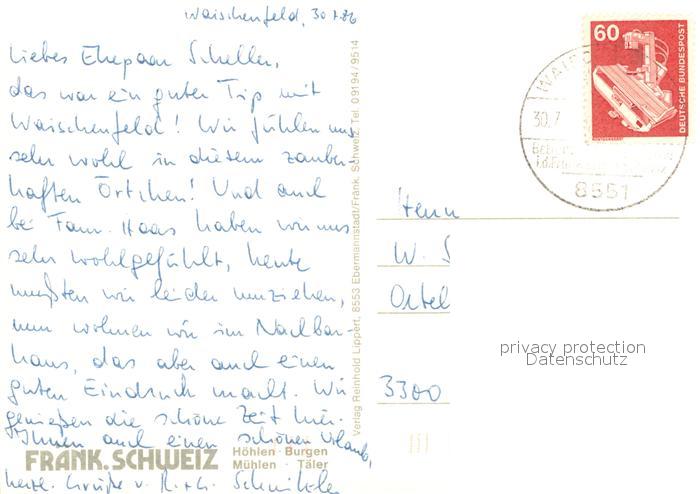 Waischenfeld, 30.7.86
Liebes Ehepaar Scheller,
das war ein guter Tip mit
Waischenfeld! Wir fühlen uns
sehr wohl in diesem zauber-
haften Örtchen! Und auch
bei Fam. Haas haben wir uns
sehr wohlgefühlt, heute
mußten wir leider umziehen,
nun wohnen wir im Nachbar-
haus, das aber auch einen
guten Eindruck macht. Wir
genießen die schöne Zeit hier.
Ihnen auch einen schönen Urlaub,
herzl. Grüße v. R. + G.
FRÄNK. SCHWEIZ
Höhlen · Burgen
Mühlen · Täler
Verlag Reinhold Lippert, 8553 Ebermannstadt/Fränk. Schweiz, Tel. 09194/9514
60
DEUTSCHE BUNDESPOST
30.7
8551
Herrn
W. S
Ortel
3300
privacy protection
Datenschutz